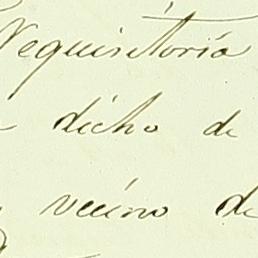 Requisitoria
dicho de
vecino de